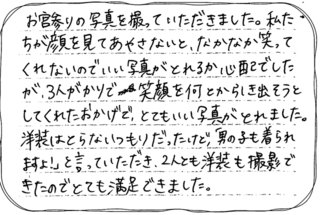 お宮参りの写真を撮っていただきました。私た
ちが顔を見てあやさないと、なかなか笑って
くれないのでいい写真がとれるか心配でした
が、3人がかりで笑顔を何とかひき出そうと
してくれたおかげで、とてもいい写真がとれました。
洋装はとらないつもりだったけど、男の子も着られ
ますよ!と言っていただき、2人とも洋装も撮影で
きたのでとても満足できました。